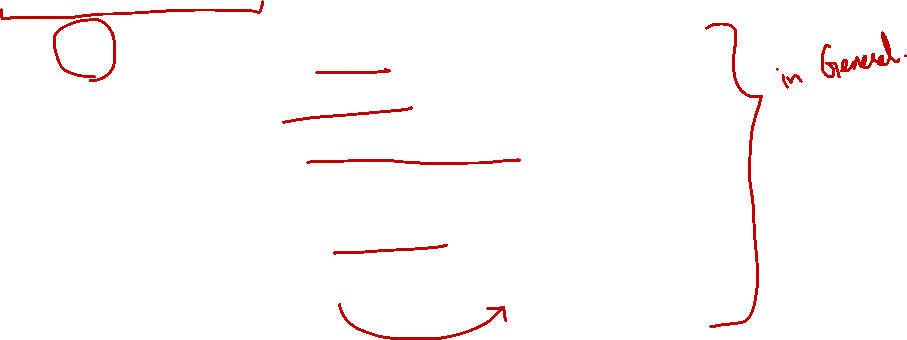 in General.